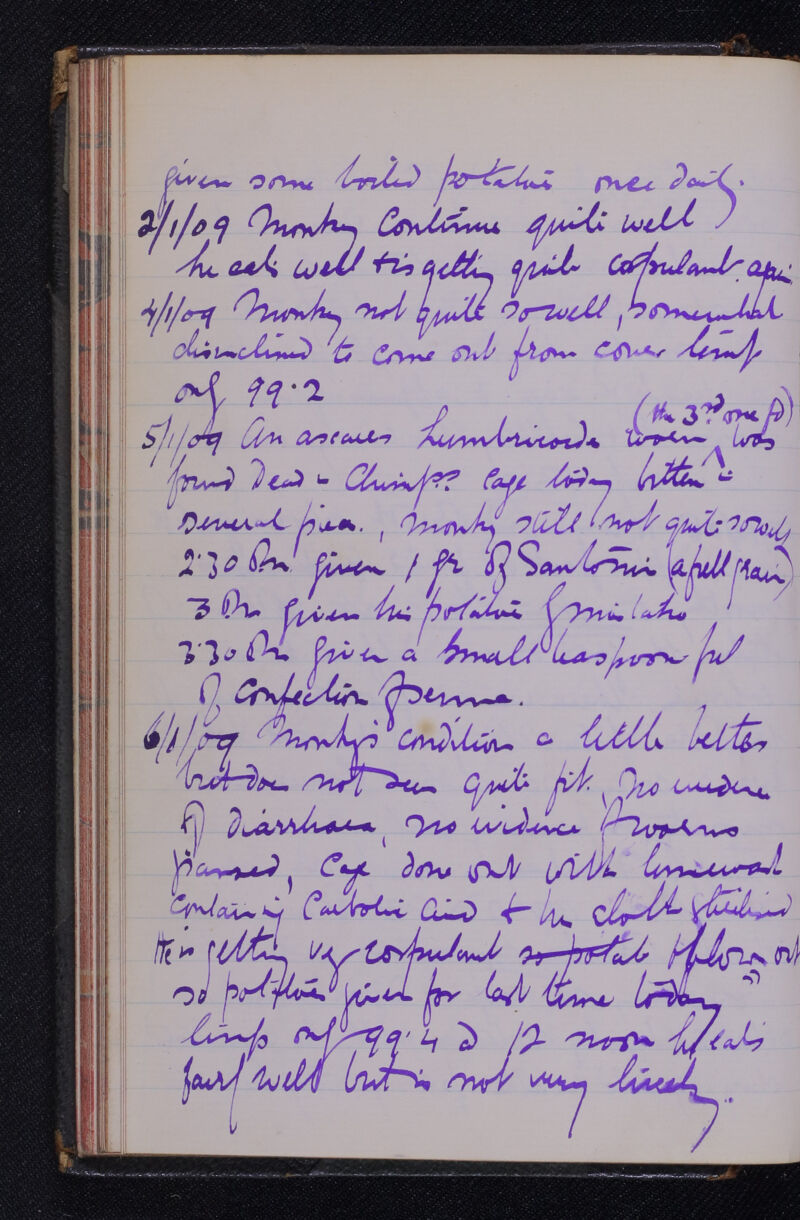 given some boiled potatoes once daily.
2/1/09 Monkey Continues quite well
he eats well & is getting quite corpulant again
4/1/09 Monkey not quite so well, somewhat
disinclined to come out from cover temp
only 99.2
5/1/09 An ascares Lumbricoide worm (the 3rd one fd) was
found dead in Chimps?? Cage today bitten in
several pieces, monkey still not quite so well
2.30 Pm given 1 gr of Santonin (a full grain)
3 Pm given his potatoes
3.30 Pm given a small teaspoon ful
of Confection of senna.
6/1/09 Monkey's condition a little better
but does not seem quite fit, no evidence
of diarrhaea, no evidence of worms
passed, Cage done out with limewash
containing Carbolic Acid & his cloth sterilised
He is getting very corpulant so potat & blown out
so potatoes given for last time today
temp only 99.4 @ 12 noon he eats
fairly well but is not very lively.